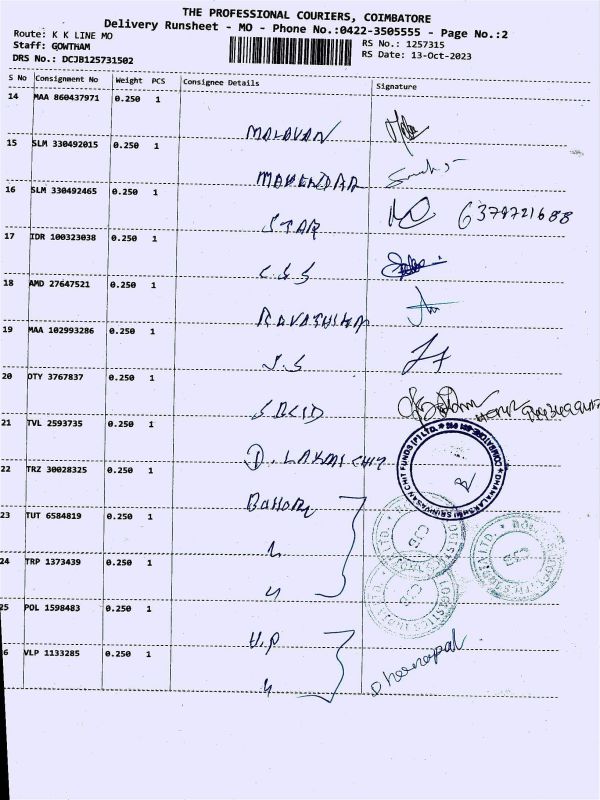 THE PROFESSIONAL COURIERS, COIMBATORE
Delivery Runsheet - MO - Phone No.:0422-3505555 - Page No.:2
Route: K K LINE MO
Staff: GOWTHAM
DRS No.: DCJB125731502
RS No.: 1257315
RS Date: 13-Oct-2023
S No Consignment No Weight PCS Consignee Details Signature
14 MAA 860437971 0.250 1
MALAVAN
15 SLM 330492015 0.250 1
MAHENDAR
16 SLM 330492465 0.250 1
STAR 6379721688
17 IDR 100323038 0.250 1
C.S.S
18 AMD 27647521 0.250 1
19 MAA 102993286 0.250 1
J.S
20 OTY 3767837 0.250 1
21 TVL 2593735 0.250 1
D. LAKMI CHIT
DHANALAKSHMI SRINIVASAN CHIT FUNDS (P) LTD.
22 TRZ 30028325 0.250 1
23 TUT 6584819 0.250 1
24 TRP 1373439 0.250 1
25 POL 1598483 0.250 1
V.P
6 VLP 1133285 0.250 1
Dhanapal